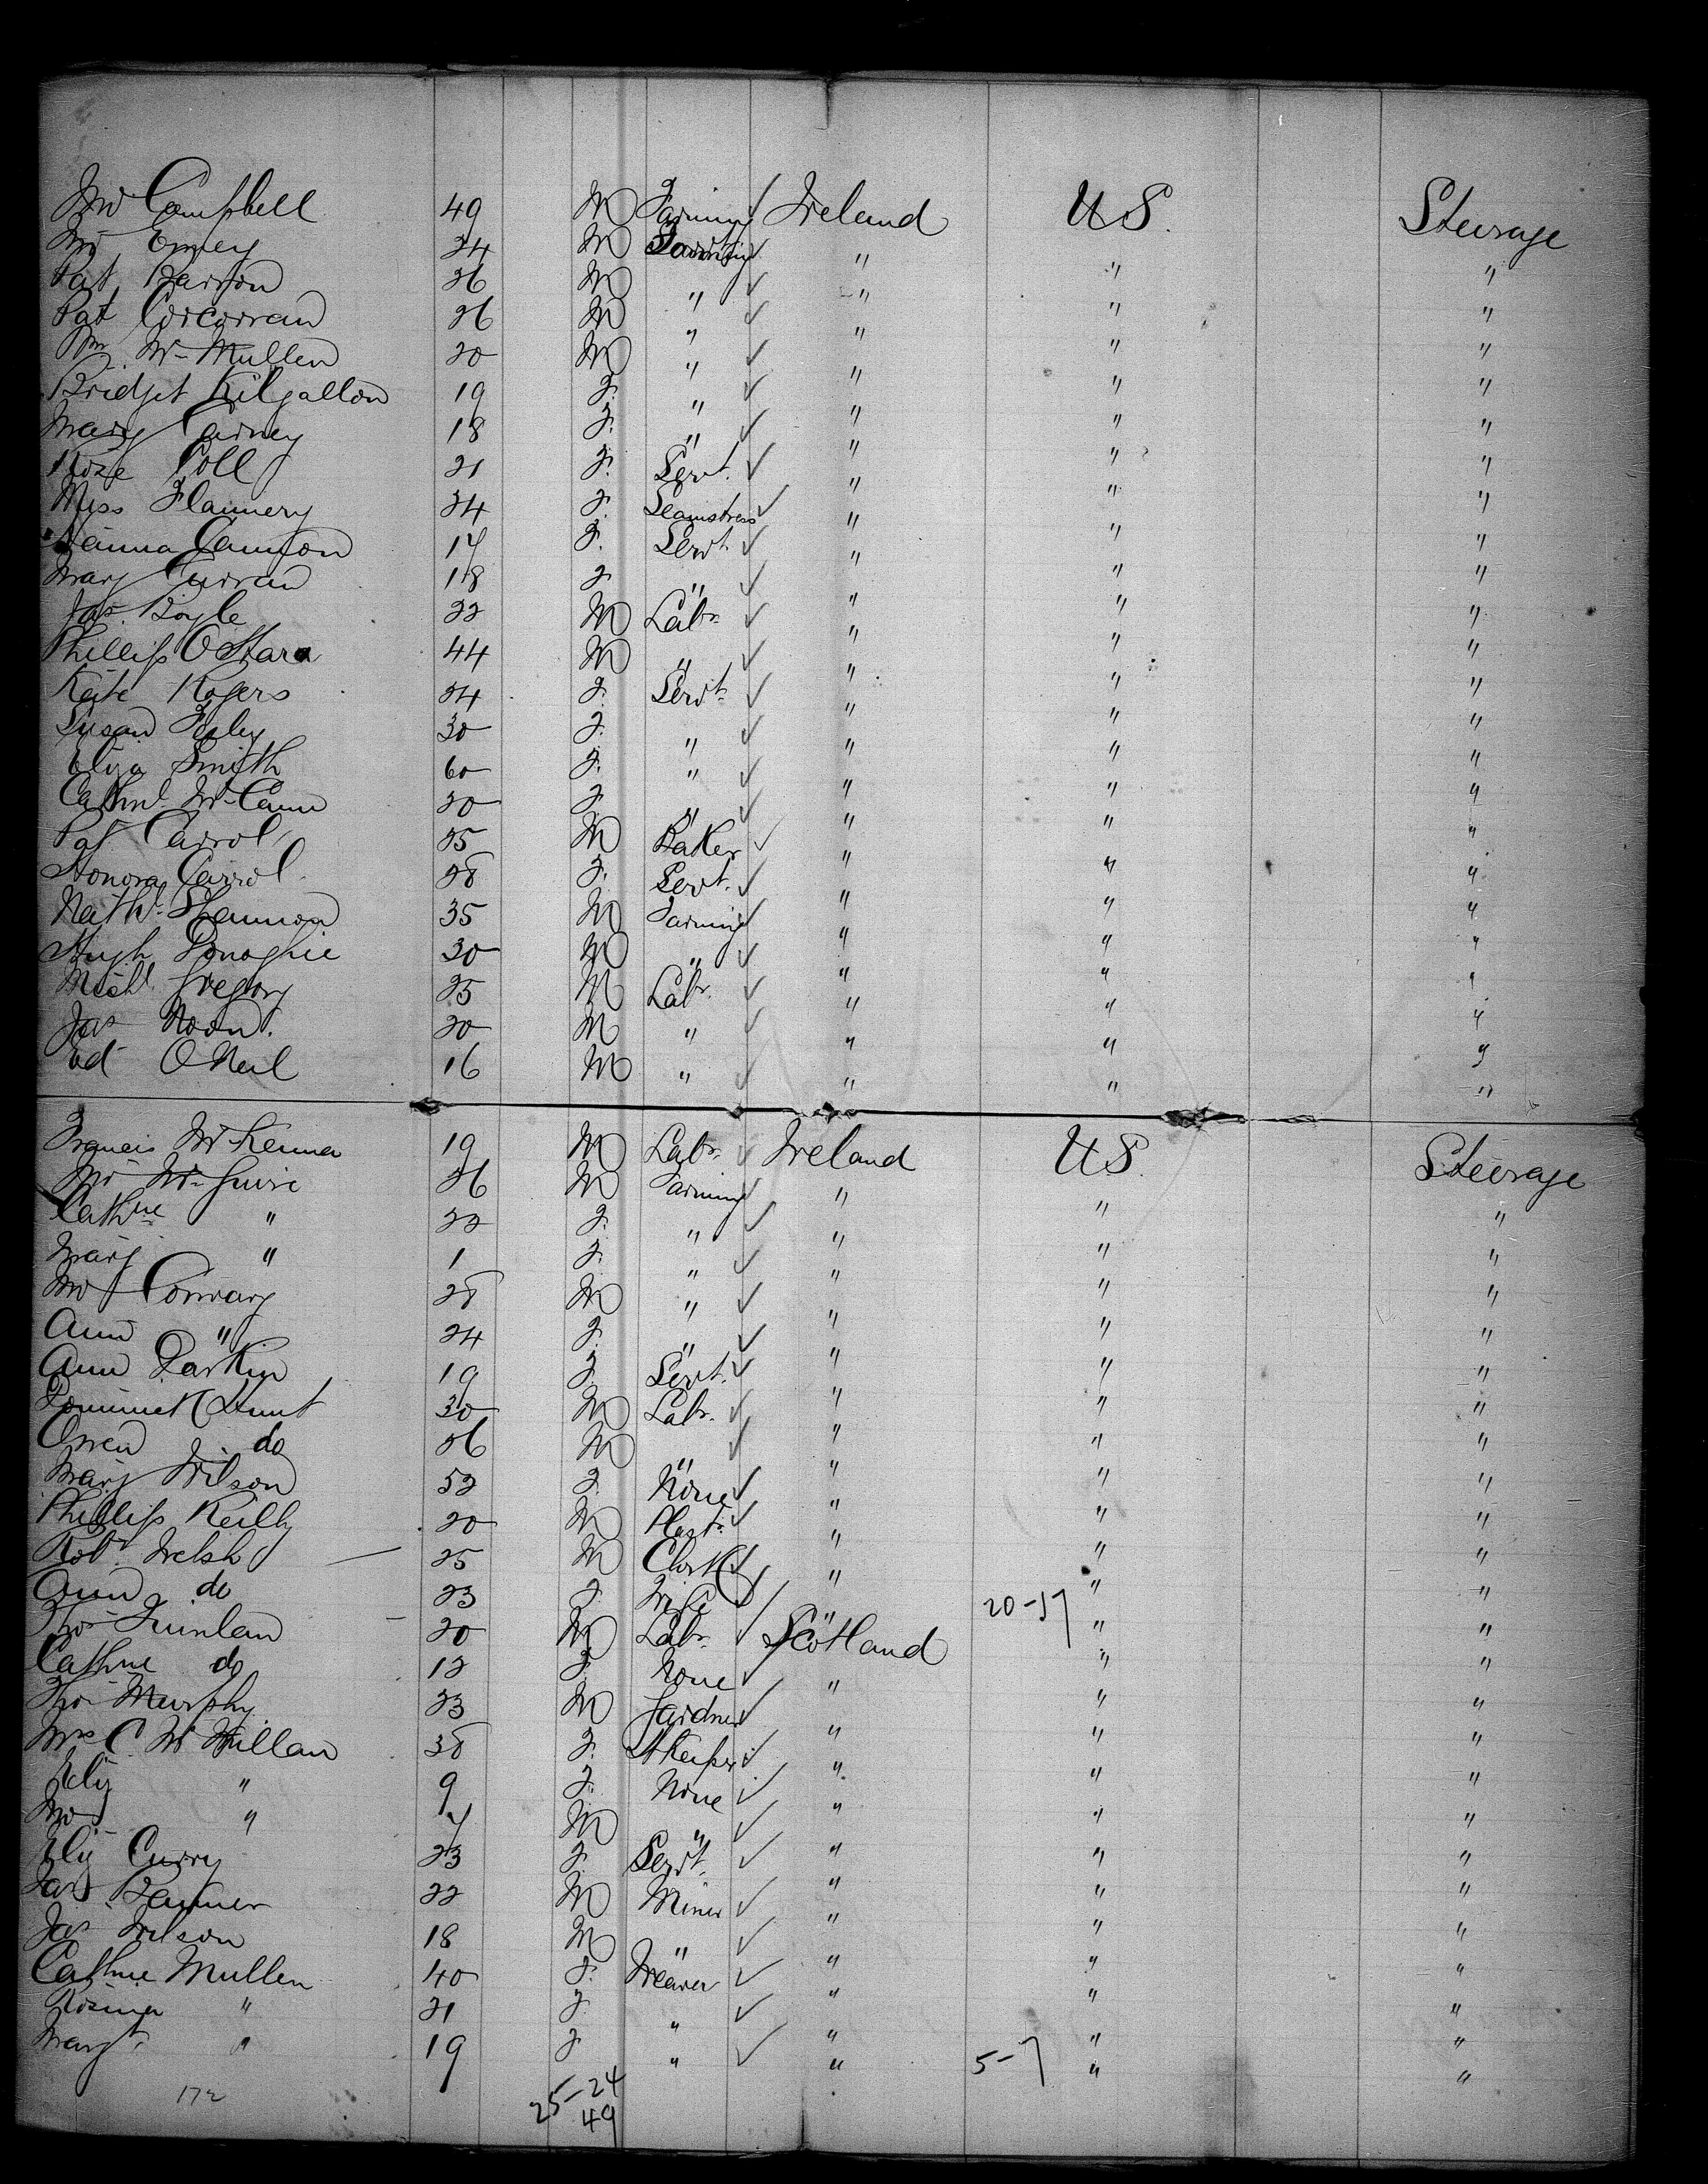 Jno Campbell 49 M Farming ✓ Ireland U S. Steerage
Jno Emey 24 M Farming ✓ " " "
Pat Barron 26 M " ✓ " " "
Pat Corcorran 26 M " ✓ " " "
Wm McMullen 20 M " ✓ " " "
Bridget Kilgallon 19 F. " ✓ " " "
Mary Carney 18 F. " ✓ " " "
Rose Coll 21 F. Servt. ✓ " " "
Miss Flannery 24 F. Seamstress ✓ " " "
Hanna Cannon 17 F. Servt. ✓ " " "
Mary Curran 18 F " ✓ " " "
Jas. Boyle 22 M Labr ✓ " " "
Phillip O'Hara 44 M " ✓ " " "
Kate Rogers 24 F. Servt. ✓ " " "
Susan Foley 30 F. " ✓ " " "
Eliza Smith 60 F. " ✓ " " "
Cathne McCann 20 F " ✓ " " "
Pat Carrol 25 M Baker ✓ " " "
Honora Carrol 28 F. Servt. ✓ " " "
Nathl. Shannon 35 M Farming ✓ " " "
Hugh Donoghie 30 M " ✓ " " "
Michl. Gregory 25 M Labr. ✓ " " "
Jas Noon. 20 M " ✓ " " "
Ed O'Neil 16 M " ✓ " " "
Francis McKenna 19 M Labr. ✓ Ireland U S. Steerage
Jno McGuire 26 M Farming ✓ " " "
Cathne " 22 F. " ✓ " " "
Mary " 1 F. " ✓ " " "
Jno Conway 28 M " ✓ " " "
Ann " 24 F. " ✓ " " "
Ann Larkin 19 F. Servt. ✓ " " "
Dominick Hunt 30 M Labr. ✓ " " "
Owen do 26 M " ✓ " " "
Mary Wilson 52 F. None ✓ " " "
Phillip Reilly 20 M Plastr. ✓ " " "
Robt. Welsh 25 M Clerk ✓ " " "
Ann do 23 F. Wife ✓ " 20-17 " "
Thos Quinlan 20 M Labr. ✓ Scotland " "
Cathne do 12 F. None ✓ " " "
Thos Murphy 23 M Gardner ✓ " " "
Mrs C. McMillan 38 F. H Keeper ✓ " " "
Eliz " 9 F. None ✓ " " "
Jno " 7 M " ✓ " " "
Eliz Curry 23 F. Servt. ✓ " " "
Jas 22 M Miner ✓ " " "
Jas Wilson 18 M " ✓ " " "
Cathne Mullen 40 F. Weaver ✓ " " "
Rosina " 21 F " ✓ " " "
Margt. " 19 F " ✓ " 5-7 " "
172 25-24
49